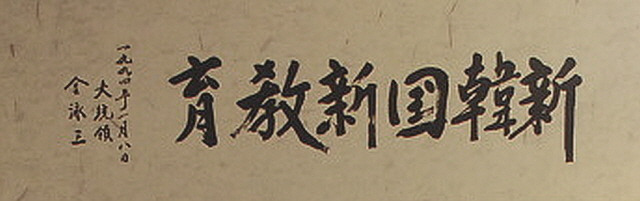 新韓国新教育
一九九四年一月八日
大統領
金泳三